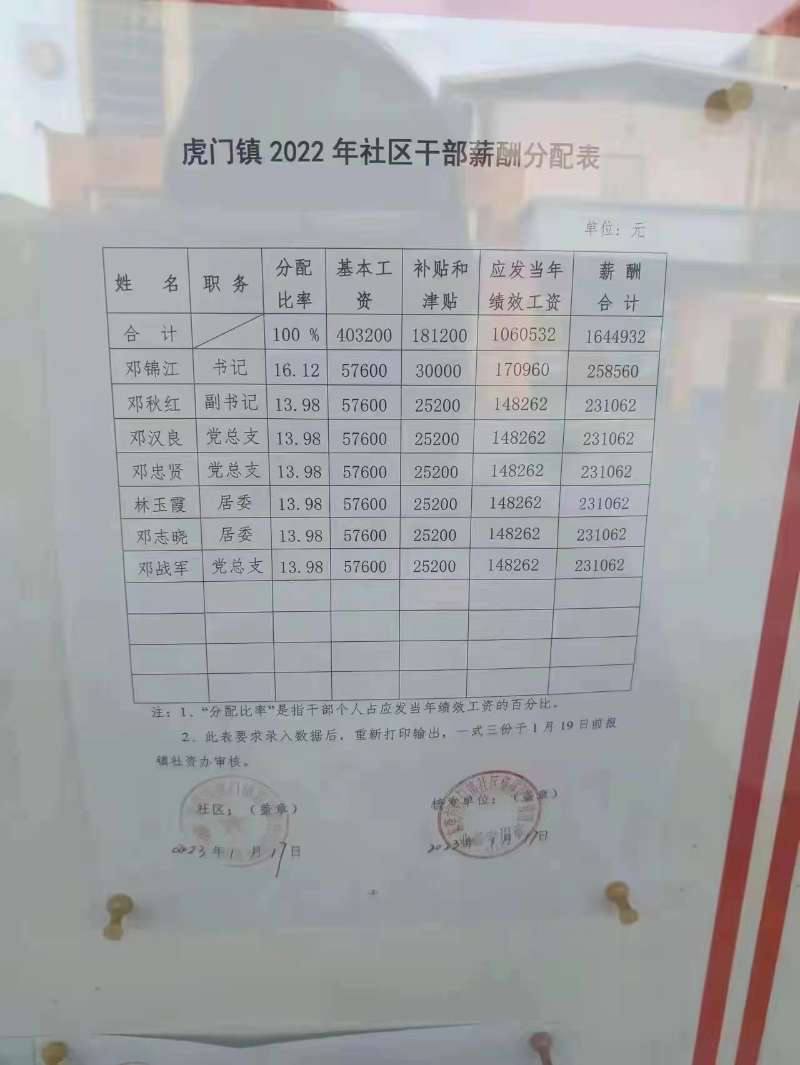 虎门镇 2022 年社区干部薪酬分配表
单位：元
姓 名 职 务 分配比率 基本工资 补贴和津贴 应发当年绩效工资 薪 酬 合 计
合 计 100 % 403200 181200 1060532 1644932
邓锦江 书记 16.12 57600 30000 170960 258560
邓秋红 副书记 13.98 57600 25200 148262 231062
邓汉良 党总支 13.98 57600 25200 148262 231062
邓忠贤 党总支 13.98 57600 25200 148262 231062
林玉霞 居委 13.98 57600 25200 148262 231062
邓志晓 居委 13.98 57600 25200 148262 231062
邓战军 党总支 13.98 57600 25200 148262 231062
注：1、“分配比率”是指干部个人占应发当年绩效工资的百分比。
2、此表要求录入数据后，重新打印输出，一式三份于 1 月 19 日前报
镇社资办审核。
社区：（盖章） 单位：（盖章）
2023 年 1 月 17 日 2023 年 1 月 17 日